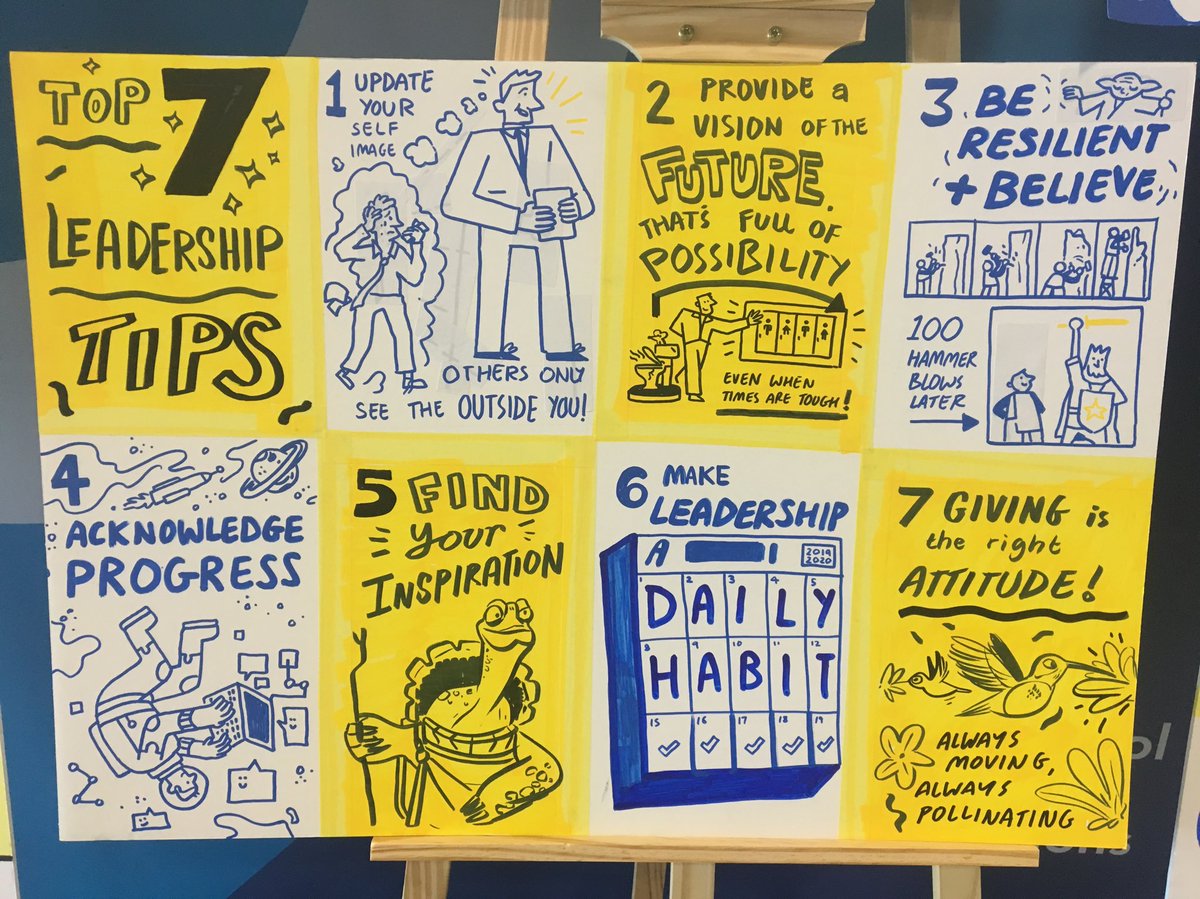 TOP 7
LEADERSHIP
TIPS
1 UPDATE
YOUR
SELF
IMAGE
OTHERS ONLY
SEE THE OUTSIDE YOU!
2 PROVIDE a
VISION OF THE
FUTURE.
THAT'S FULL OF
POSSIBILITY
EVEN WHEN
TIMES ARE TOUGH!
3 BE
RESILIENT
+ BELIEVE
100
HAMMER
BLOWS
LATER
4
ACKNOWLEDGE
PROGRESS
5 FIND
your
INSPIRATION
6 MAKE
LEADERSHIP
2019
2020
1 2 3 4 5
DAILY
8 9 10 11 12
HABIT
15 16 17 18 19
7 GIVING is
the right
ATTITUDE!
ALWAYS
MOVING,
ALWAYS
POLLINATING